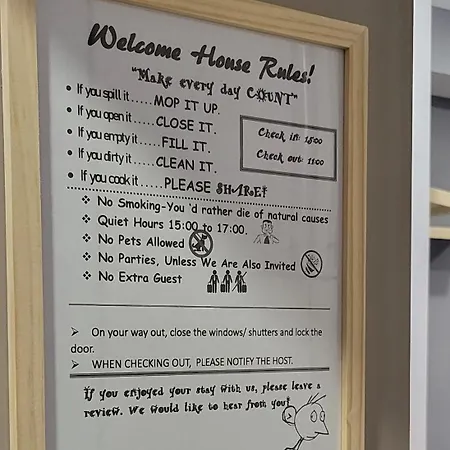 Welcome House Rules!
"Make every day COUNT"
• If you spill it.....MOP IT UP.
• If you open it.....CLOSE IT.
• If you empty it.....FILL IT.
• If you dirty it.....CLEAN IT.
• If you cook it.....PLEASE SHARE!
Check in: 15:00
Check out: 11:00
❖ No Smoking-You 'd rather die of natural causes
❖ Quiet Hours 15:00 to 17:00.
❖ No Pets Allowed
❖ No Parties, Unless We Are Also Invited
❖ No Extra Guest
➢ On your way out, close the windows/ shutters and lock the
door.
➢ WHEN CHECKING OUT, PLEASE NOTIFY THE HOST.
If you enjoyed your stay with us, please leave a
review. We would like to hear from you!